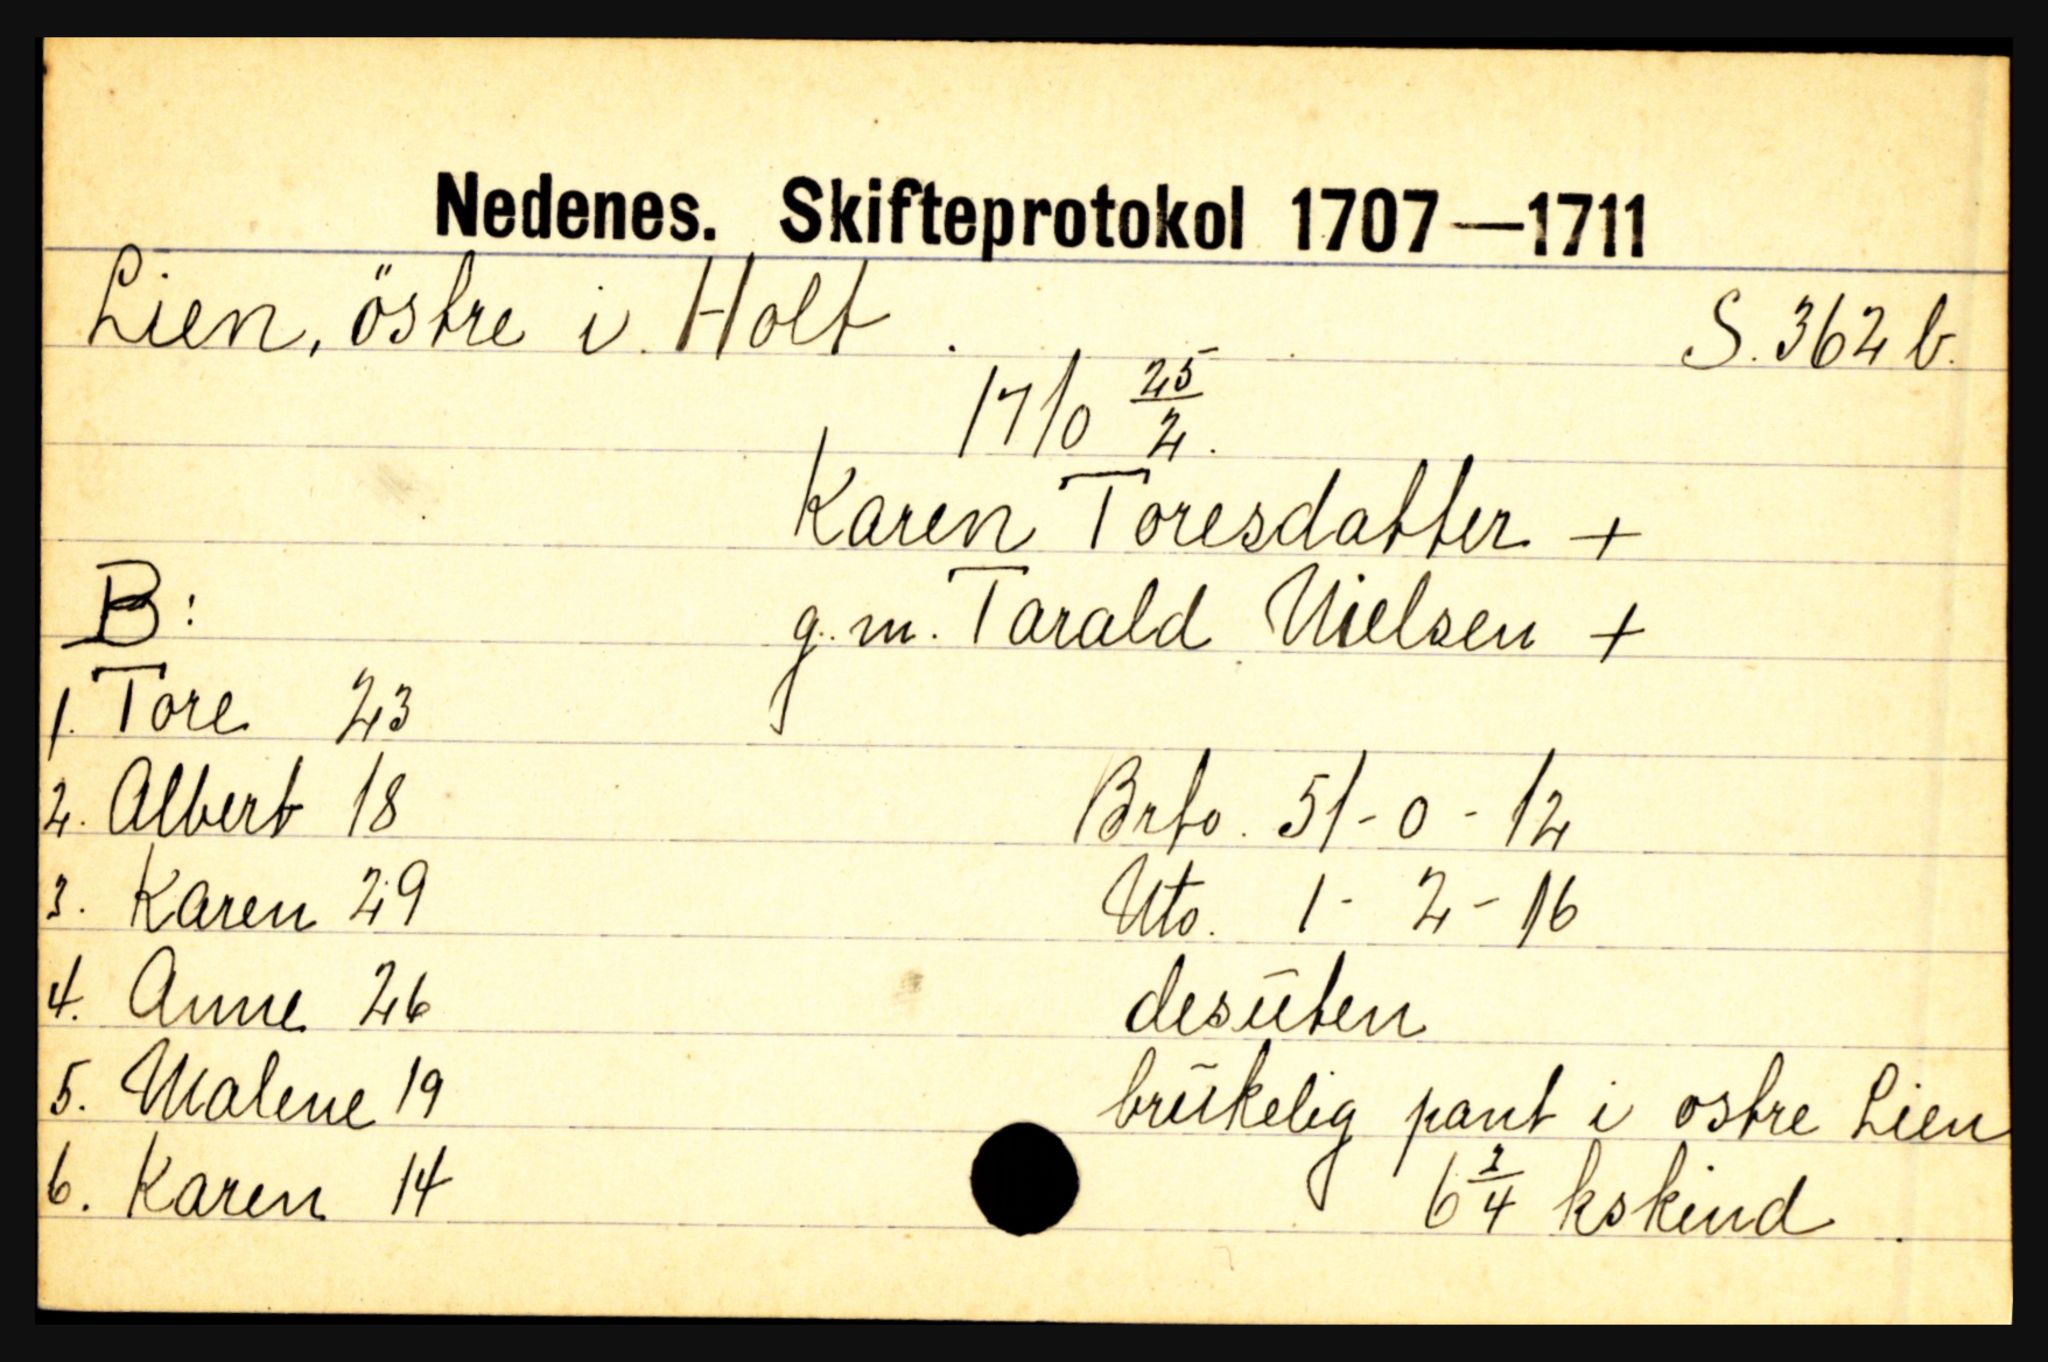 Nedenes. Skifteprotokol 1707—1711
Lien, östre i Holt . S. 362 b.
1710 25/2.
Karen Toresdatter +
g. m. Tarald Nielsen +
B:
1. Tore 23
2. Albert 18
3. Karen 29
4. Anne 26
5. Malene 19
6. Karen 14
Brto. 51 - 0 - 12
Uto. 1 - 2 - 16
desūten
brūkelig pant i ostre Lien
6 3/4 kskind